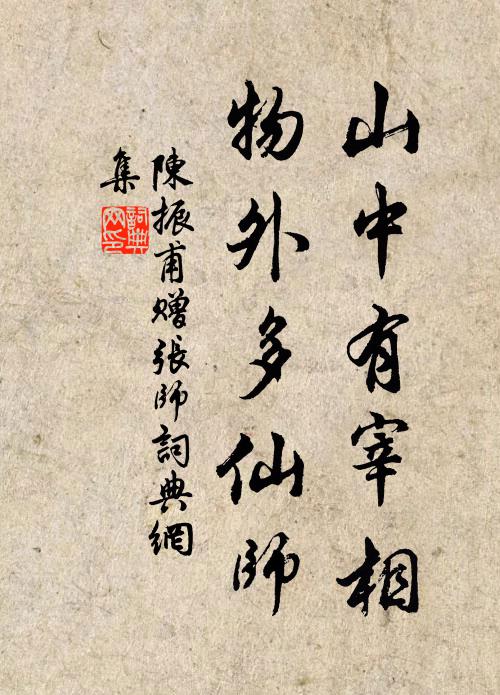 山中有宰相
物外多仙師
陳振甫贈張師詞典網
集
詞典网印